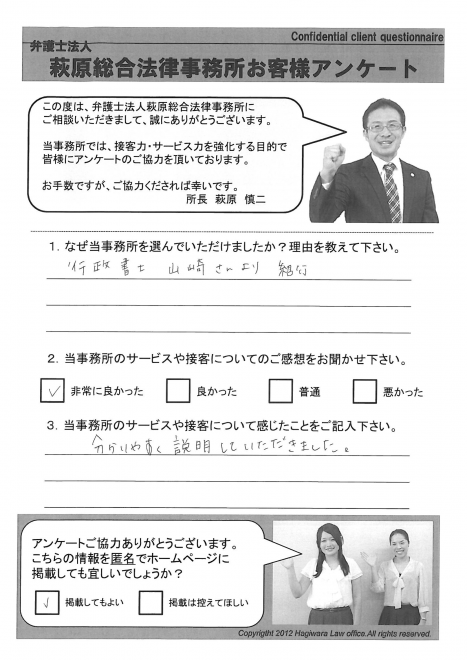 Confidential client questionnaire
弁護士法人
萩原総合法律事務所お客様アンケート
この度は、弁護士法人萩原総合法律事務所に
ご相談いただきまして、誠にありがとうございます。
当事務所では、接客力・サービス力を強化する目的で
皆様にアンケートのご協力を頂いております。
お手数ですが、ご協力くだされば幸いです。
所長 萩原 慎二
1．なぜ当事務所を選んでいただけましたか？理由を教えて下さい。
行政書士 山崎さんより 紹介
2．当事務所のサービスや接客についてのご感想をお聞かせ下さい。
✓ 非常に良かった 良かった 普通 悪かった
3．当事務所のサービスや接客について感じたことをご記入下さい。
分かりやすく説明していただきました。
アンケートご協力ありがとうございます。
こちらの情報を匿名でホームページに
掲載しても宜しいでしょうか？
✓ 掲載してもよい 掲載は控えてほしい
Copyright 2012 Hagiwara Law office.All rights reserved.